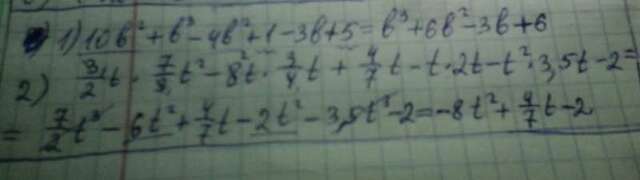 1) 10b² + b³ - 4b² + 1 - 3b + 5 = b³ + 6b² - 3b + 6
2) 8/2 t · 7/8 t² - 8² t · 3/4 t + 4/7 t - t · 2t - t² · 3,5t - 2 =
= 7/2 t³ - 6t² + 4/7 t - 2t² - 3,5t³ - 2 = -8t² + 4/7 t - 2